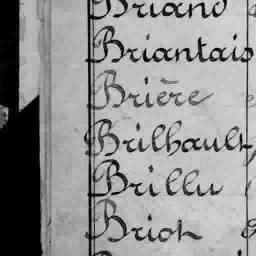 Briand
Briantais
Brière
Brilhault,
Brillu
Briot